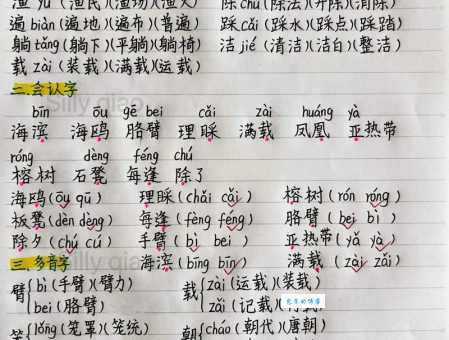 渔 yú (渔民)(渔场)(渔火) 除 chú (除法)(开除)(消除)
遍 biàn (遍地)(遍布)(普遍) 踩 cǎi (踩水)(踩点)(踩踏)
躺 tǎng (躺下)(平躺)(躺椅) 洁 jié (清洁)(洁白)(整洁)
载 zài (装载)(满载)(运载)
二.会认字
bīn ōu gē bei cǎi zài huáng yà
海滨 海鸥 胳臂 理睬 满载 凤凰 亚热带
róng dèng féng chú
榕树 石凳 每逢 除了
海鸥(ōu qū) 理睬(chǎi cǎi) 榕树(rón róng)
板凳(dèn dèng) 每逢(fèng féng) 胳臂(bei bì)
除夕(chú cú) 手臂(bì bei) 亚热带(yǎ yà)
三.多音字 海滨(bīng bīn) 满载(zài zǎi)
臂{bì(手臂)(臂力) 载{zài(运载)(装载)
bei(胳臂) zǎi(记载)
笼{lǒng(笼罩)(笼统) 朝{cháo(朝代)(唐朝)
Silly giao